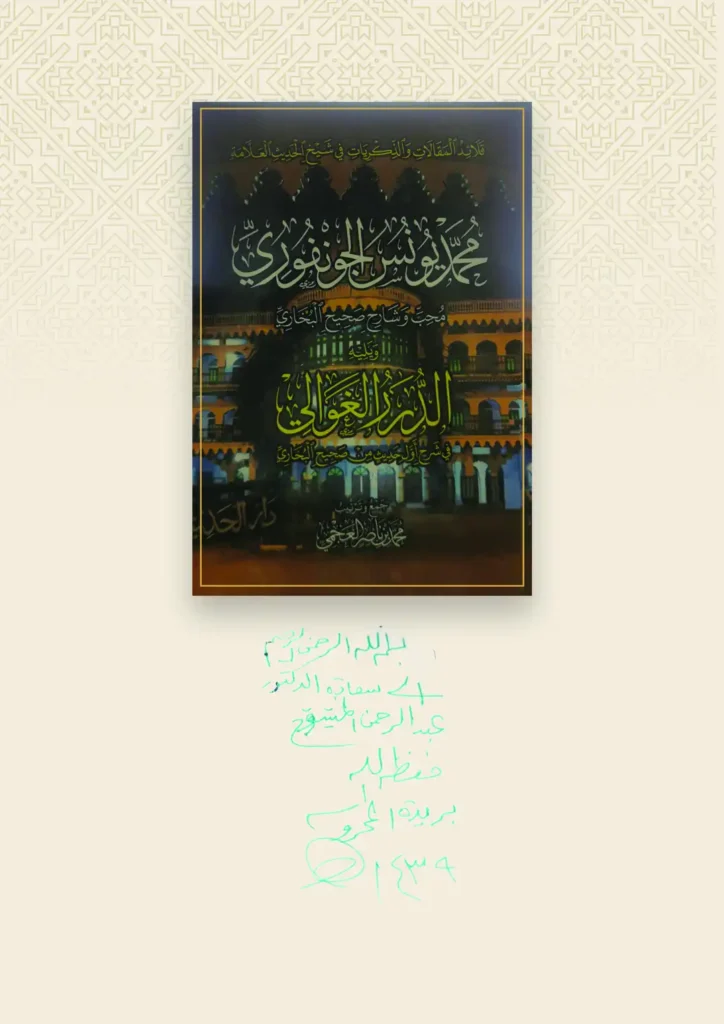 قَلَائِدُ الْمَقَالَاتِ وَالذِّكْرَيَاتِ فِي شَيْخِ الْحَدِيثِ الْعَلَّامَةِ
مُحَمَّد يُونُس الْجَوْنفُورِيِّ
مُحِبِّ وَشَارِحِ صَحِيحِ الْبُخَارِيِّ
وَيَلِيْهِ
الدُّرَرُ الْغَوَالِيْ
فِي شَرْحِ أَوَّلِ حَدِيثٍ مِنْ صَحِيحِ الْبُخَارِيِّ
دار الحديث
جمع وترتيب
محمد بن ناصر العجمي
بسم الله الرحمن الرحيم
إلى سعادة الدكتور
عبد الرحمن المشيقح
حفظه الله
بريدة المحروسة
١٤٣٩